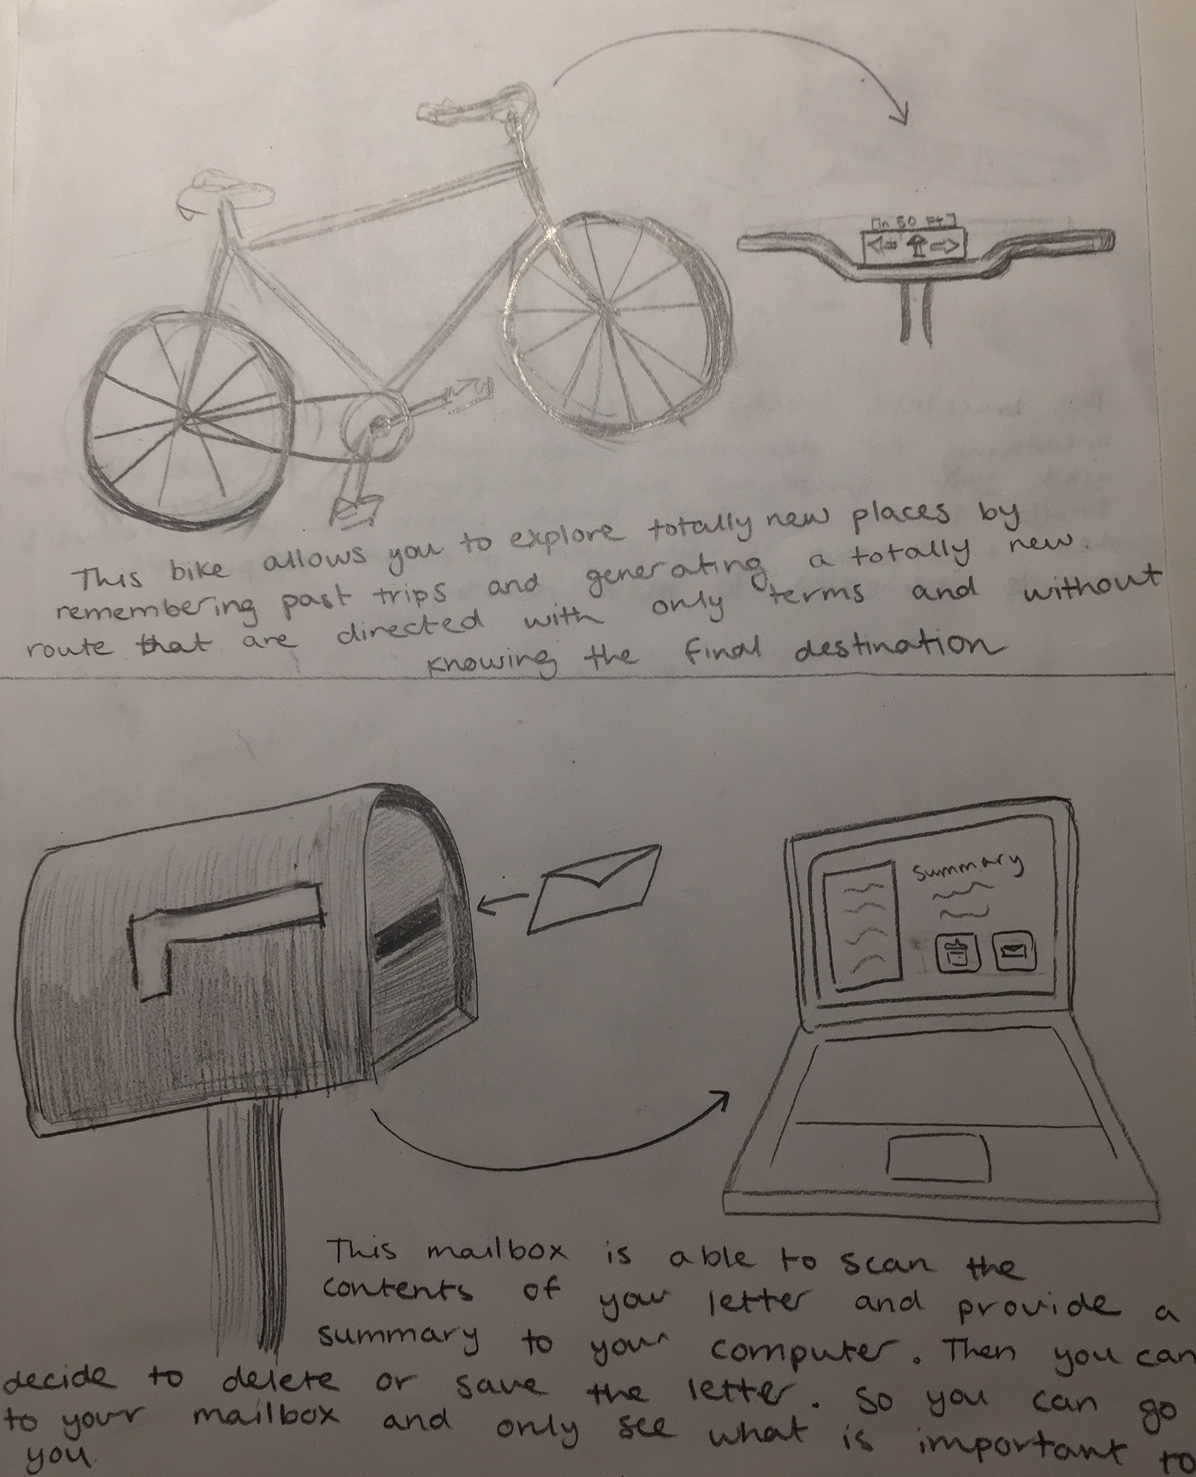 [in 50 ft]
This bike allows you to explore totally new places by
remembering past trips and generating a totally new
route that are directed with only terms and without
knowing the final destination
summary
This mailbox is able to scan the
contents of your letter and provide a
summary to your computer. Then you can
decide to delete or save the letter. So you can go
to your mailbox and only see what is important to
you.